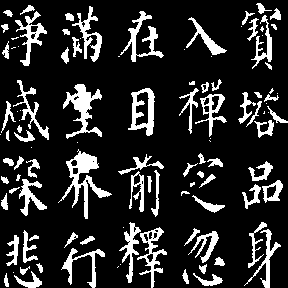 寶塔品身
入禪定忽
在目前釋
滿空界行
淨感深悲